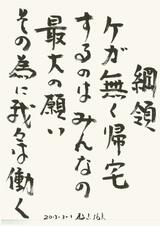 綱領
ケガ無く帰宅
するのは みんなの
最大の願い
その為に我々は働く
2013.3.1